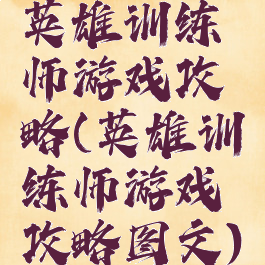 英雄训练
师游戏攻
略(英雄训
练师游戏
攻略图文)